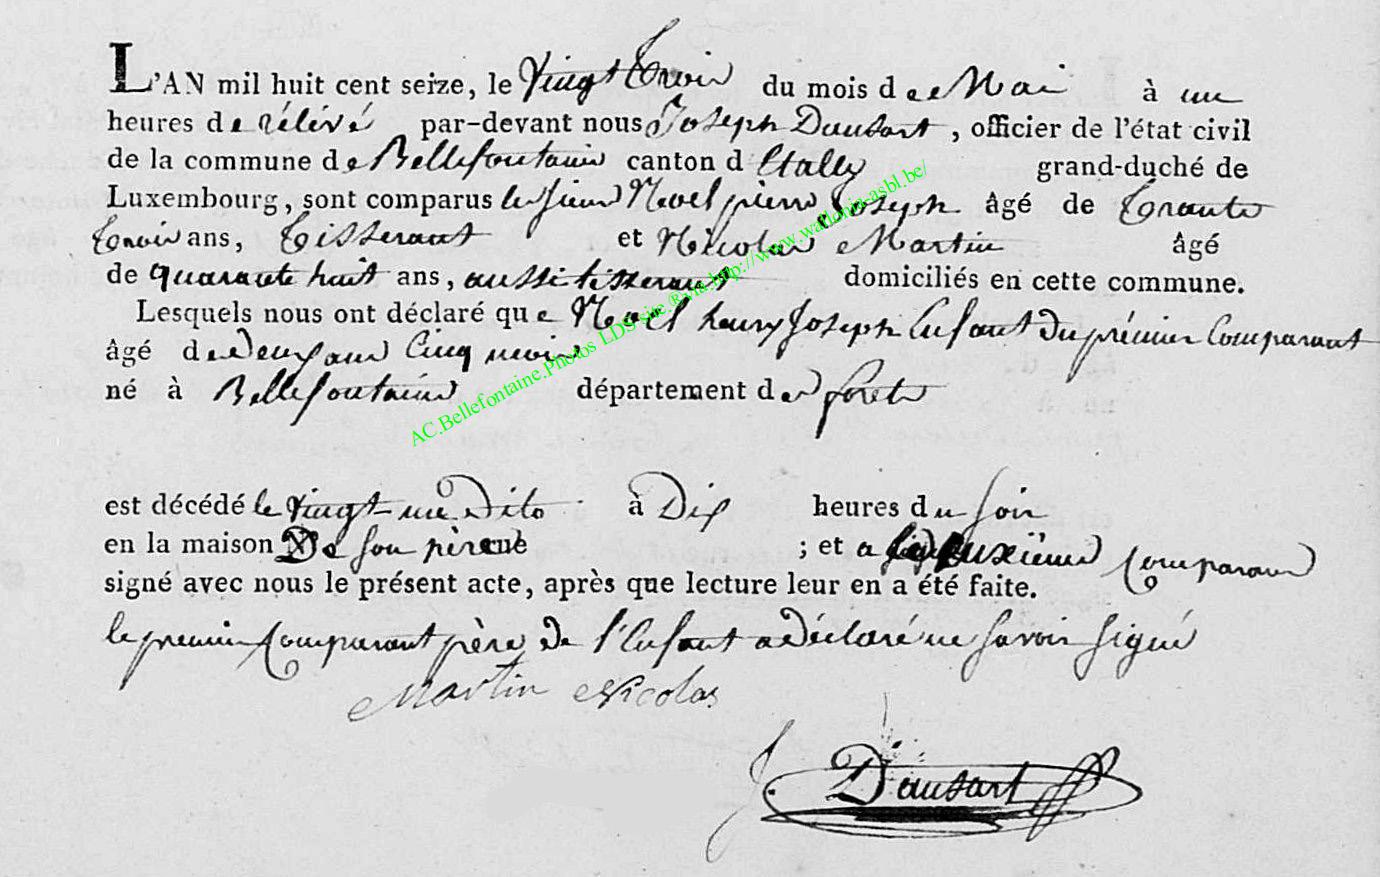 L'AN mil huit cent seize, le vingt trois du mois de Mai à une
heures de rélévé par-devant nous Joseph Dausart, officier de l'état civil
de la commune de Bellefontaine canton d'Etalle grand-duché de
Luxembourg, sont comparus les sieurs Noel pierre Joseph âgé de trante
trois ans, Tisserant et Nicolas Martin âgé
de quarante huit ans, aussi tisserant domiciliés en cette commune.
Lesquels nous ont déclaré que Noël henry Joseph Enfant du prémier Comparant
âgé de deux ans Cinq mois
né à Bellefontaine département de forets
AC.Bellefontaine.Photos LDS site ®via http://www.wallonia-asbl.be/
est décédé le vingt un dito à Dix heures du soir
en la maison De son père ; et a le deuxième Comparant
signé avec nous le présent acte, après que lecture leur en a été faite.
le premier Comparant père de l'Enfant a déclaré ne savoir signé
Martin Nicolas
J. Dausart